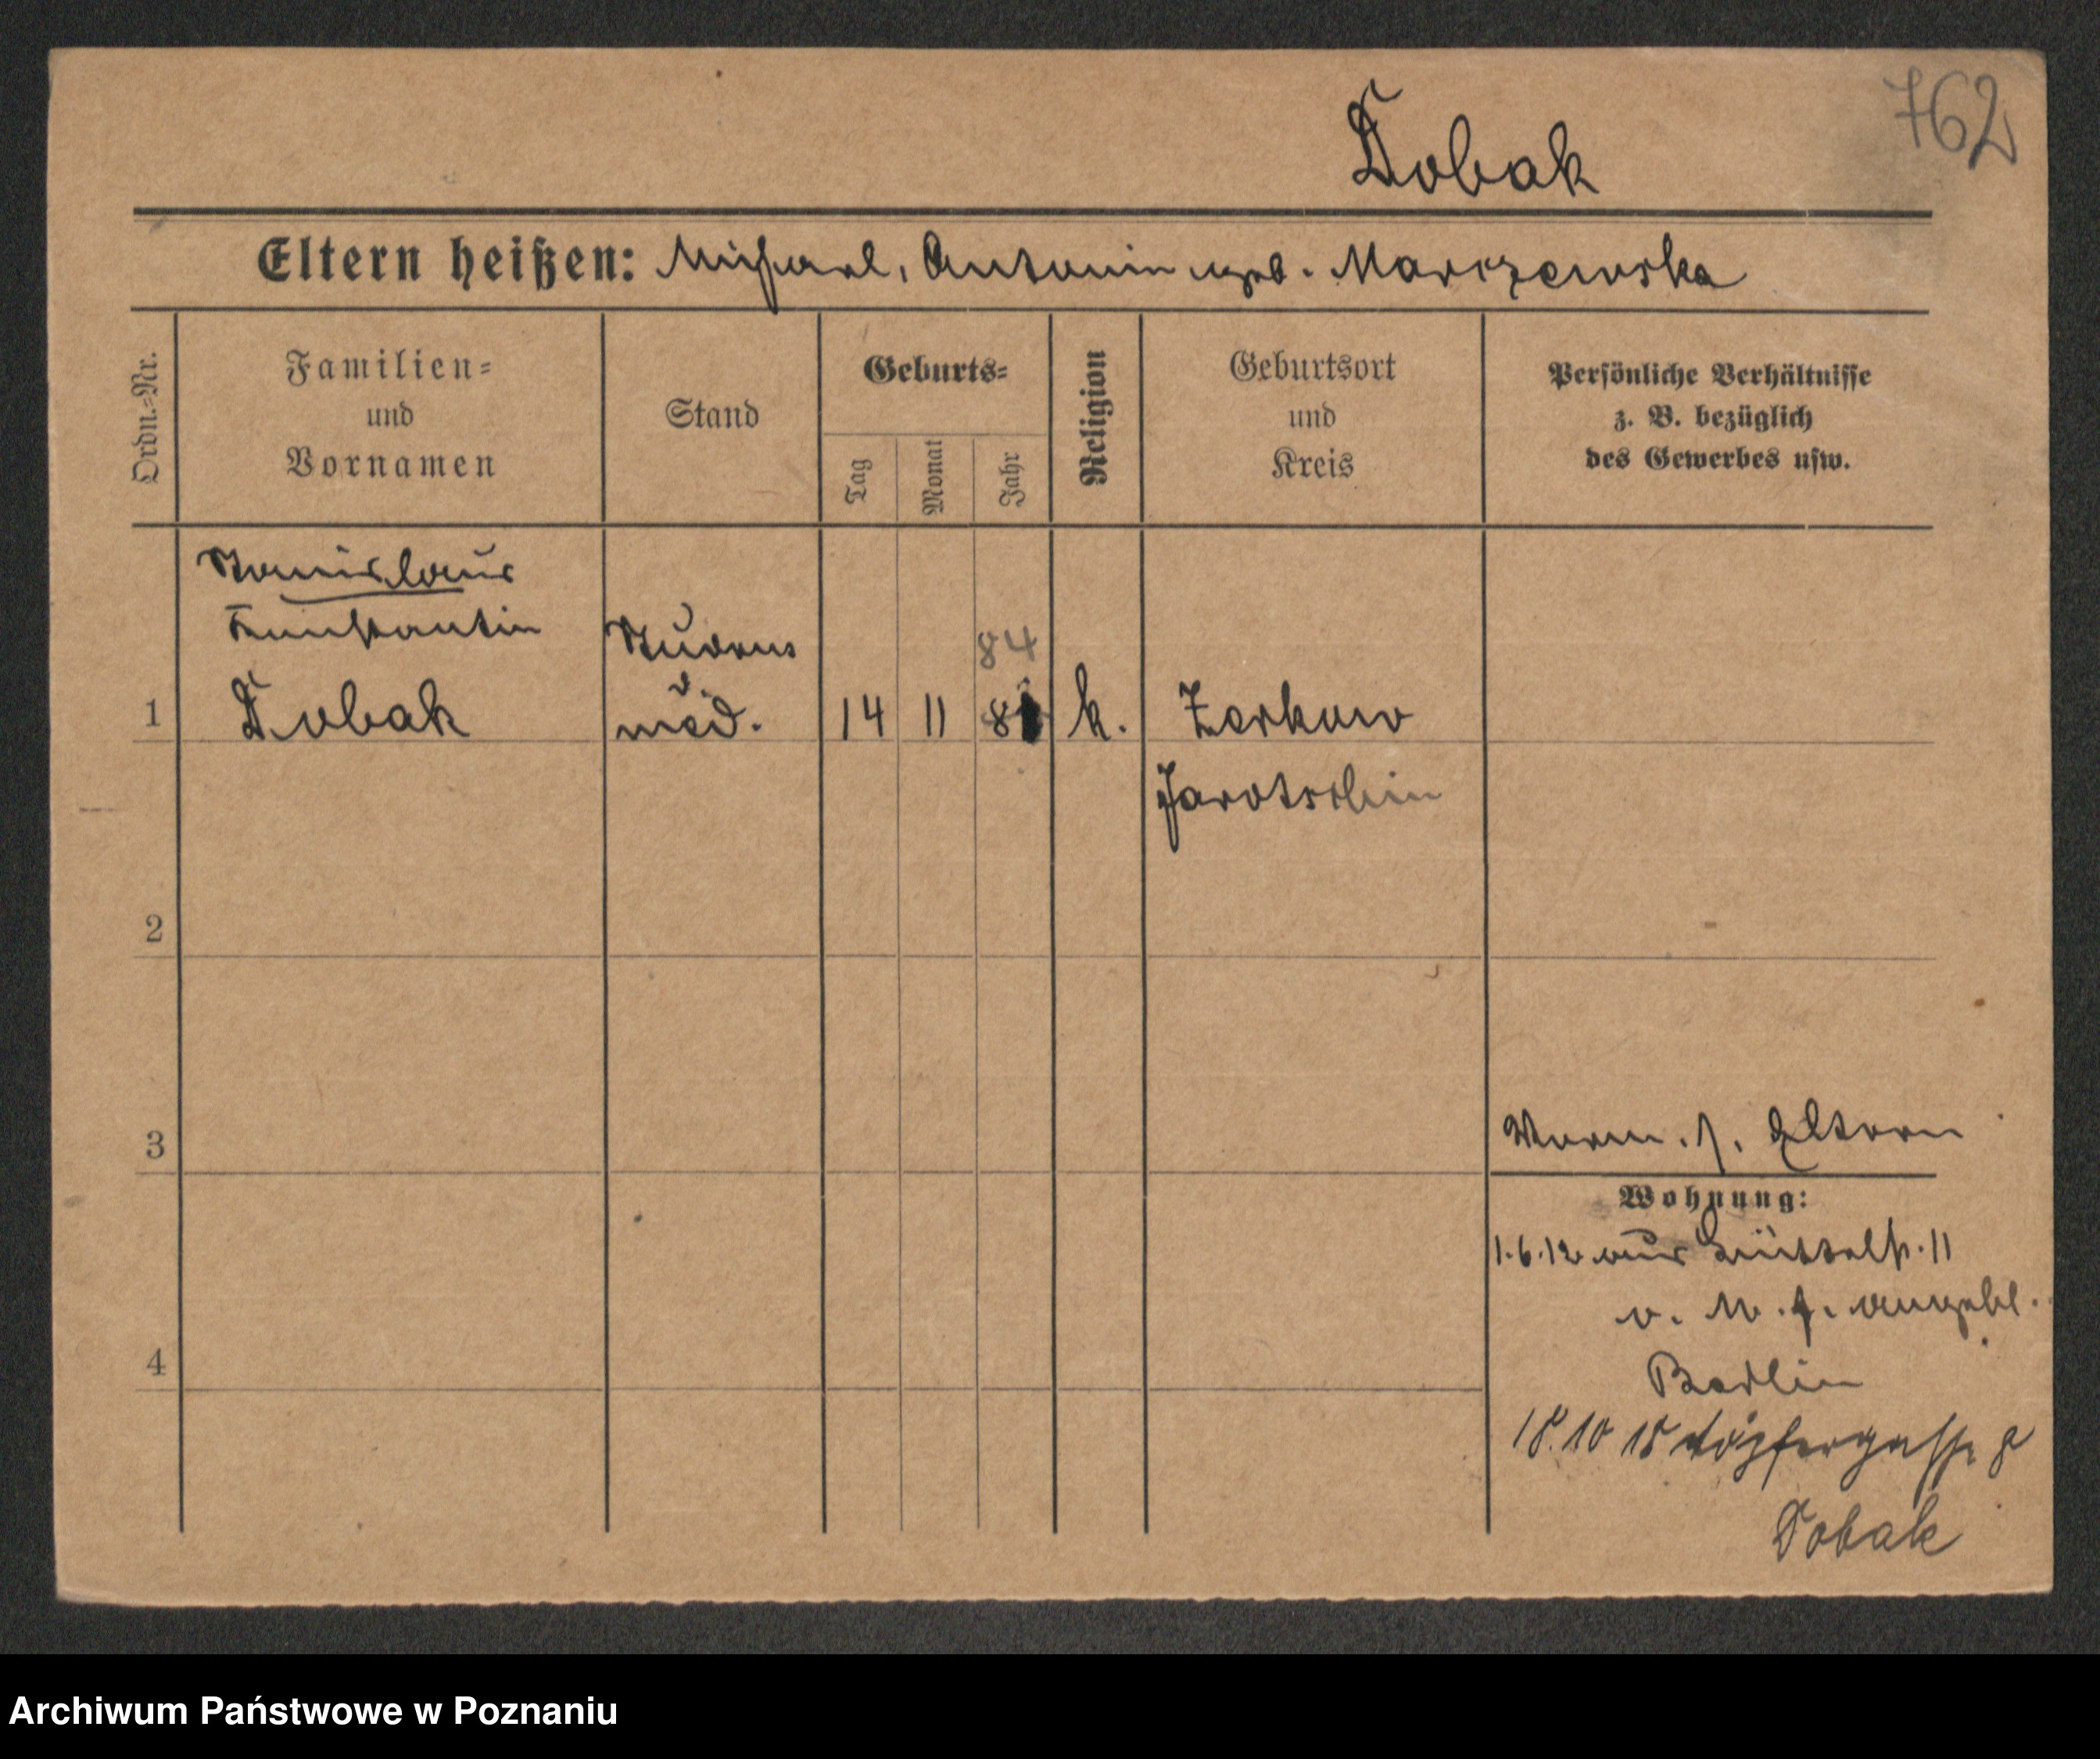 762
Dobak
Eltern heißen: Michael, Antonin geb. Marczewska
Ordn.-Nr.
Familien-
und
Vornamen
Stand
Geburts-
Tag
Monat
Jahr
Religion
Geburtsort
und
Kreis
Persönliche Verhältnisse
z. B. bezüglich
des Gewerbes usw.
Stanislaus
Konstantin
Dobak
Studens
d.
med.
84
1
14 11 81 k. Zerkow
Jarotschin
2
3
Eltern
Wohnung:
1.6.12 aus
v. angebl.
Berlin
4
18.10 15 Töpfergasse
Dobak
Archiwum Państwowe w Poznaniu